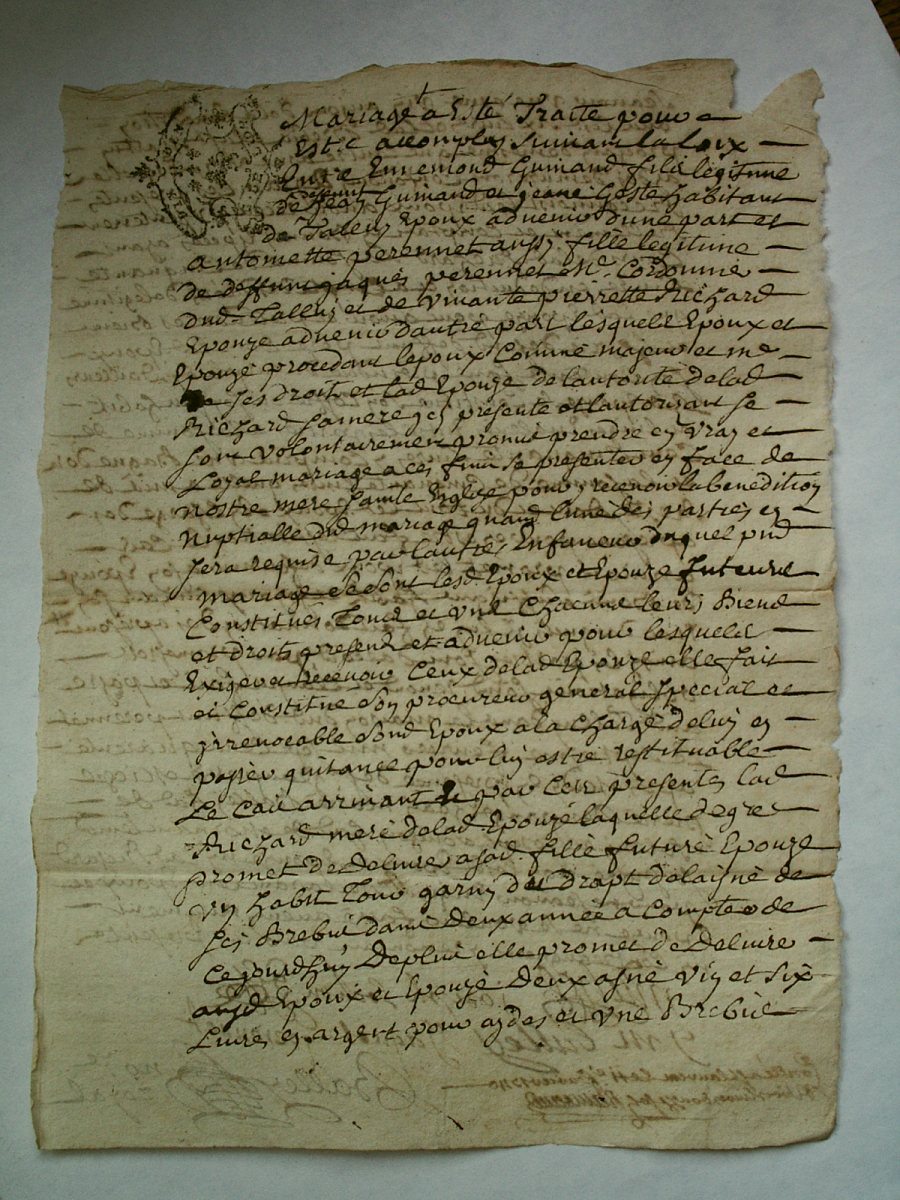 Mariage a Esté Traité pour
Estre accomplis suivant la loix
Entre Ennemond Guinand fils legitime
de Jean Guinand et jeane Goste habitant
de Talluy Epoux advenir dune part et
antoinette perennet aussy fille legitime
de deffunt jaques perennet Me Cordonnie
dud Talluy et de vivante pierrette Richard
Epouze advenir dautre part lesquels Epoux et
Epouze procedant lepoux Comme majeur et me
de ses droits et lad Epouze de lautorité delad
Richard sa mere jcy presente et lautorisant se
sont volontairement promis prendre en vray et
Loyal mariage a ces fins se presenter en face de
nostre mere sainte Esglize pour y recevoir la benedition
nuptialle dud mariage quand lune des parties en
sera requise par lautre En faveur duquel pnt
mariage se sont lesd Epoux et Epouze futeurs
Constitués Tous et uns Chacuns leurs Biens
et droits presents et advenir pour lesquels
Exiger et recevoir Ceux delad Epouze elle fait
et Constitue son procureur general special et
jrrevocable sond Epoux a la Charge de luy en
passer quitance pour luy estre restituable
Le Cas arrivant par Ces presentes lad
Richard mere delad Epouze laquelle de gre
promet de deluire a sad fille future Epouze
un habit Tout garny de drapt de laisne de
ses Brebis dans deux année a Compter de
Cejourdhuy de plus elle promet de deluire
ausd Epoux et Epouze deux asné vin et six
Livres en argent pour aydes et une Brebis